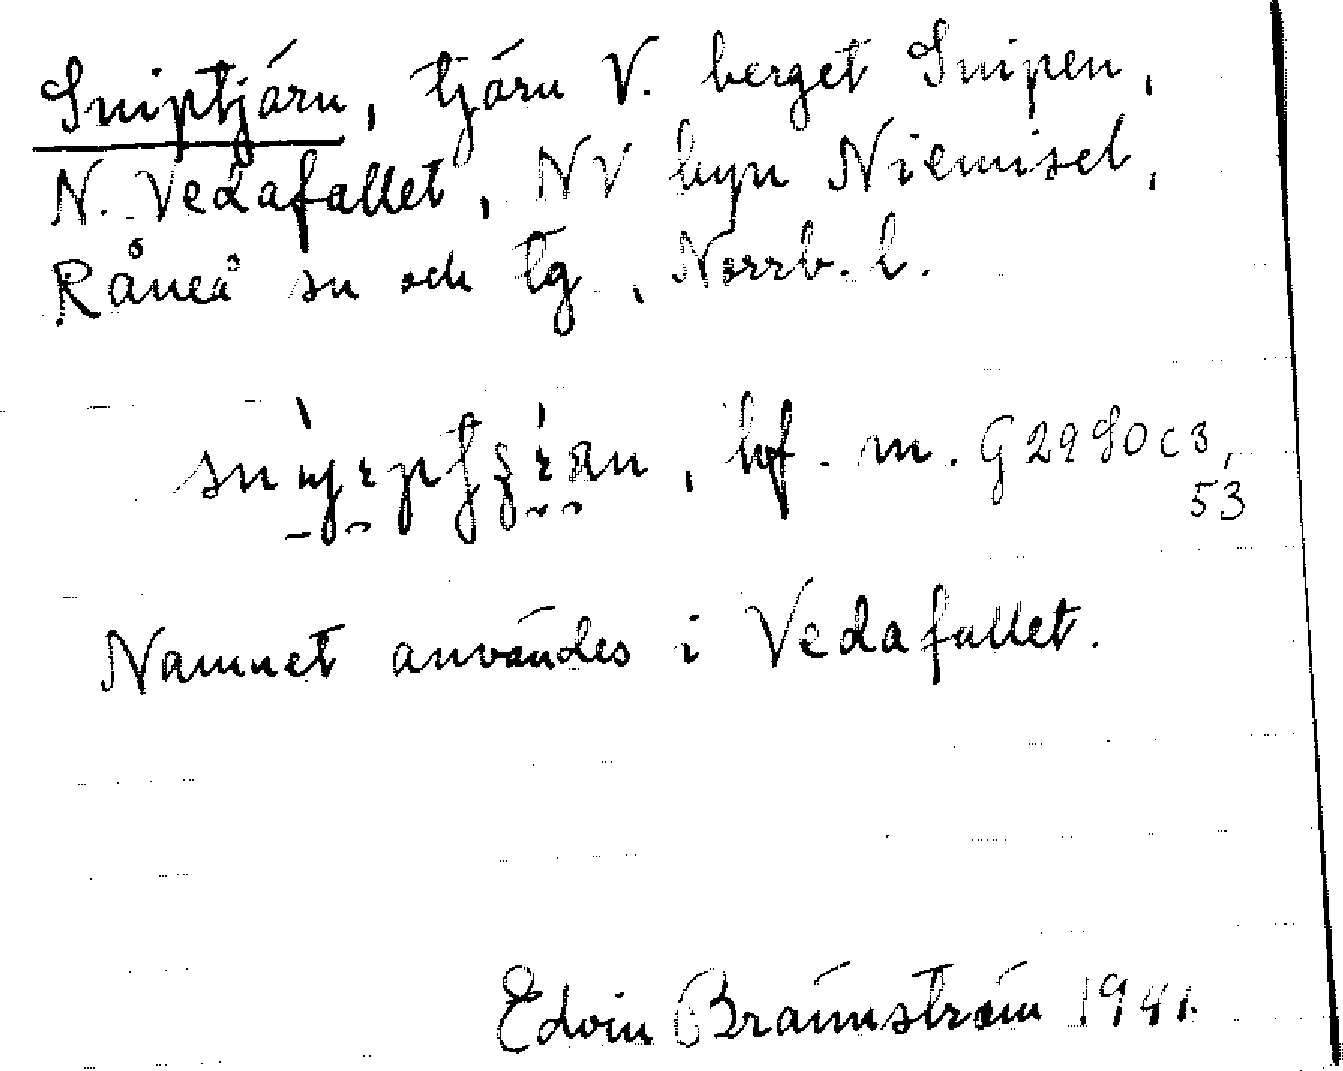 Sniptjärn, tjärn V. berget Snipen,
N. Vedafallet, NV byn Niemisel,
Råneå sn och tg, Norrb. l.
bf. m. G2980c3,
53
Namnet användes i Vedafallet.
Edvin Brännström 1941.